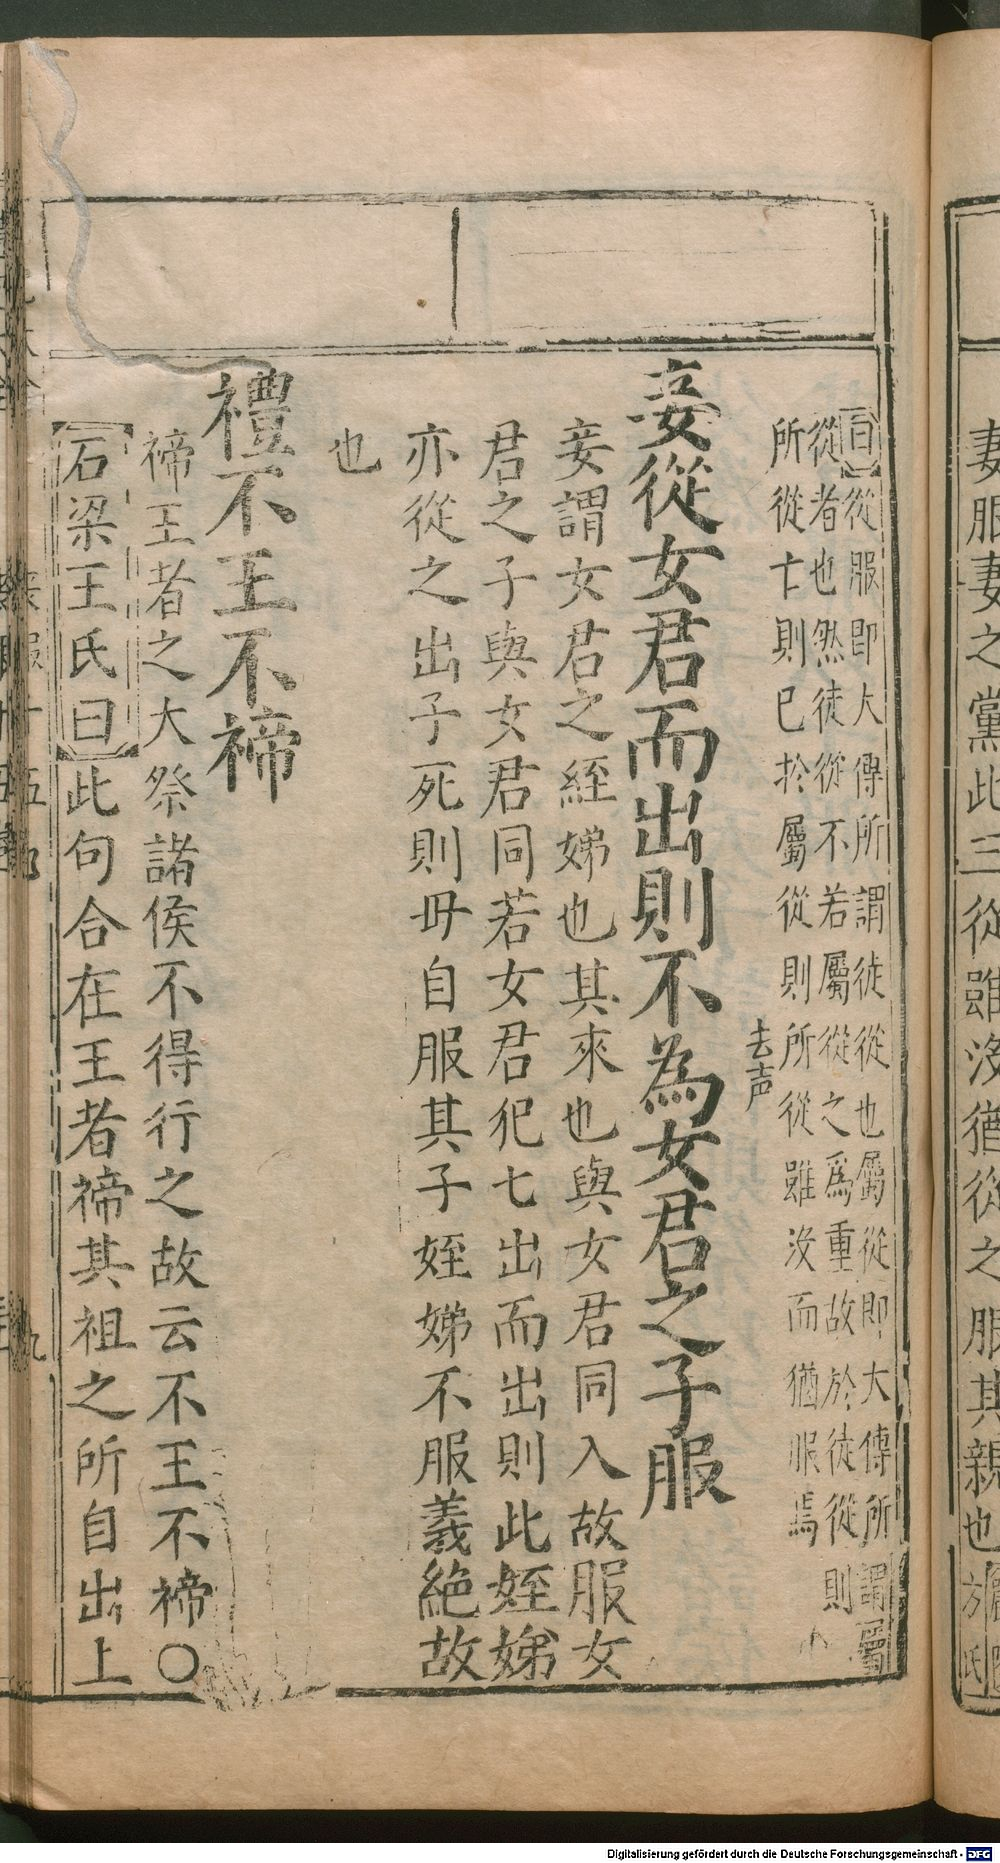 妻服妻之黨此三從雖没猶從之服其親也
方氏
曰從服即大傳所謂徒從也屬從即大傳所謂屬
從者也然徒從不若屬從之爲重故於徒從則
所從亡則已於屬從則所從雖没而猶服焉
去声
妾從女君而出則不為女君之子服
妾謂女君之姪娣也其來也與女君同入故服女
君之子與女君同若女君犯七出而出則此姪娣
亦從之出子死則毋自服其子姪娣不服義絶故
也
禮不王不禘
禘王者之大祭諸侯不得行之故云不王不禘○
石梁王氏曰此句合在王者禘其祖之所自出上
Digitalisierung gefördert durch die Deutsche Forschungsgemeinschaft - DFG